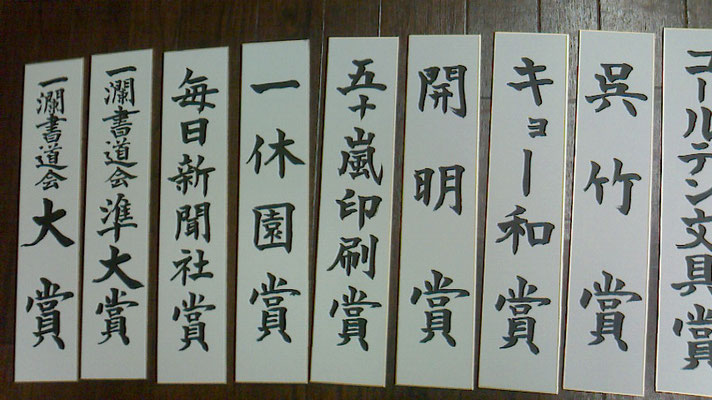 ゴールデン文具賞
呉竹賞
キョー和賞
開明賞
五十嵐印刷賞
一休園賞
毎日新聞社賞
一瀾書道会準大賞
一瀾書道会大賞